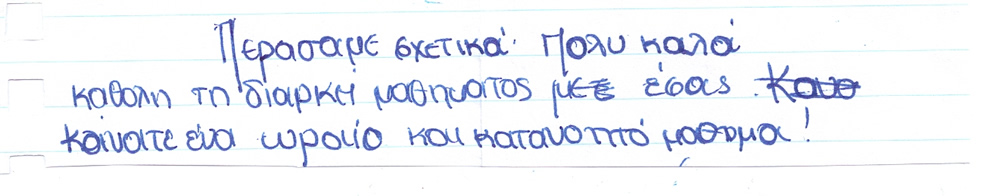 Περασαμε σχετικά πολυ καλά
καθολη τη διαρκή μαθηματος με εσας.
κάναιτε ένα ωραίο και κατανοητό μαθημα!